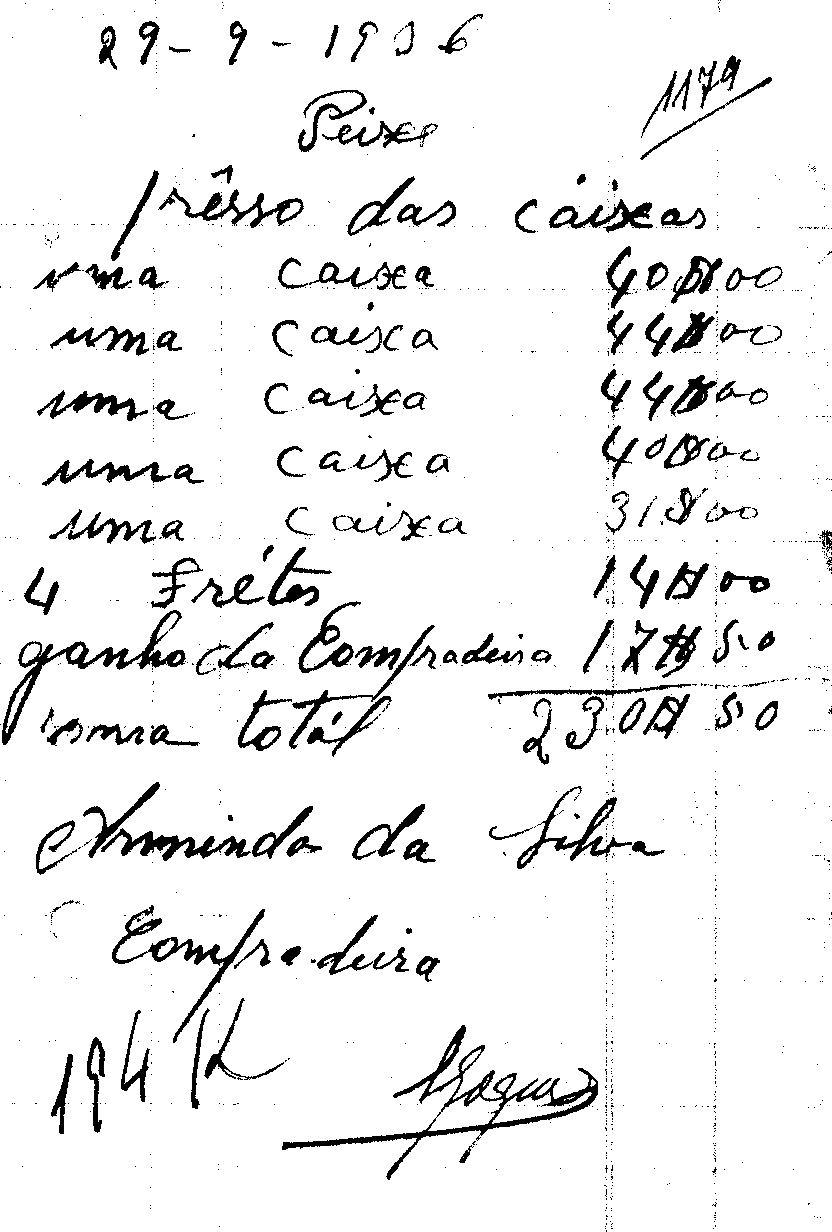 29-9-1936
1179
Peixe
prêsso das caixas
uma caixa 40$00
uma caixa 44$00
uma caixa 44$00
uma caixa 40$00
uma caixa 31$00
4 Frétes 14$00
ganho da Compradeira 17$50
soma totál 230$50
Arminda da Silva
Compradeira
194 K